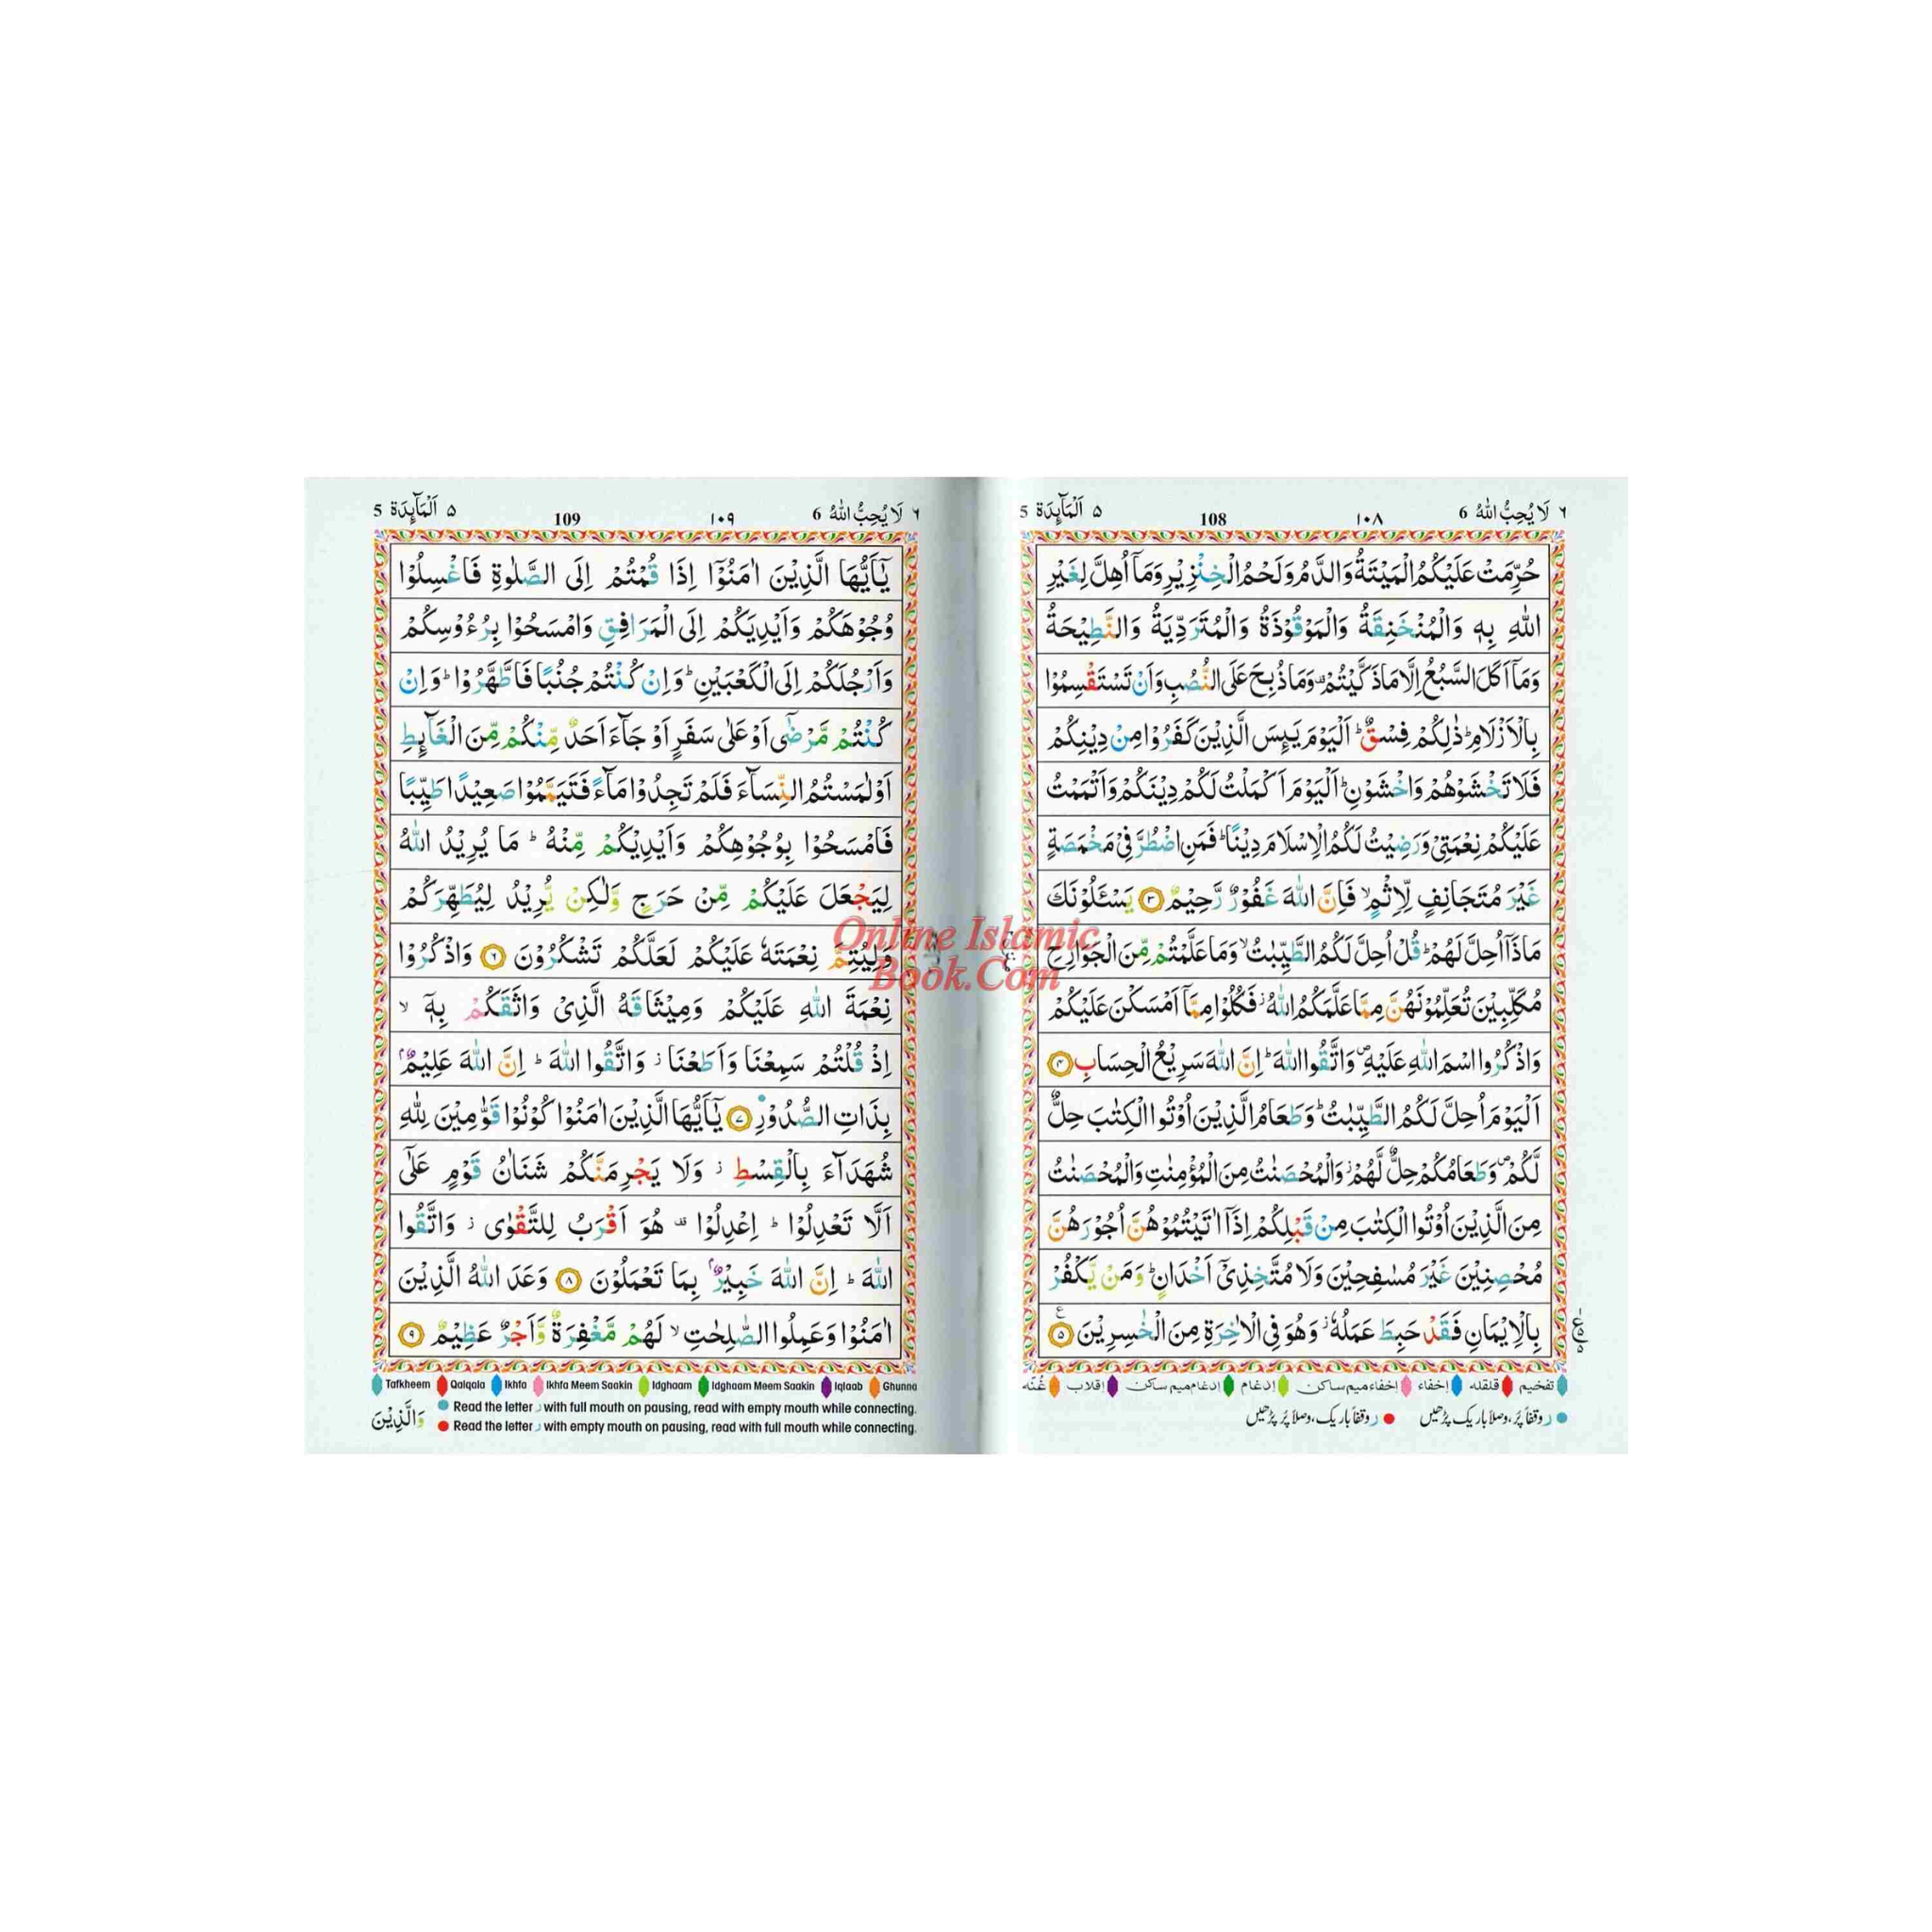 ٦ لَا يُحِبُّ اللّٰهُ 6
١٠٨
108
٥ اَلْمَآئِدَة 5
حُرِّمَتْ عَلَيْكُمُ الْمَيْتَةُ وَالدَّمُ وَلَحْمُ الْخِنْزِيْرِ وَمَآ اُهِلَّ لِغَيْرِ
اللّٰهِ بِهٖ وَالْمُنْخَنِقَةُ وَالْمَوْقُوْذَةُ وَالْمُتَرَدِّيَةُ وَالنَّطِيْحَةُ
وَمَآ اَكَلَ السَّبُعُ اِلَّا مَا ذَكَّيْتُمْ ۫ وَمَا ذُبِحَ عَلَى النُّصُبِ وَاَنْ تَسْتَقْسِمُوْا
بِالْاَزْلَامِ ؕ ذٰلِكُمْ فِسْقٌ ؕ اَلْيَوْمَ يَئِسَ الَّذِيْنَ كَفَرُوْا مِنْ دِيْنِكُمْ
فَلَا تَخْشَوْهُمْ وَاخْشَوْنِ ؕ اَلْيَوْمَ اَكْمَلْتُ لَكُمْ دِيْنَكُمْ وَاَتْمَمْتُ
عَلَيْكُمْ نِعْمَتِيْ وَرَضِيْتُ لَكُمُ الْاِسْلَامَ دِيْنًا ؕ فَمَنِ اضْطُرَّ فِيْ مَخْمَصَةٍ
غَيْرَ مُتَجَانِفٍ لِّاِثْمٍ ۙ فَاِنَّ اللّٰهَ غَفُوْرٌ رَّحِيْمٌ ﴿٣﴾ يَسْـَٔلُوْنَكَ
مَاذَآ اُحِلَّ لَهُمْ ؕ قُلْ اُحِلَّ لَكُمُ الطَّيِّبٰتُ ۙ وَمَا عَلَّمْتُمْ مِّنَ الْجَوَارِحِ
مُكَلِّبِيْنَ تُعَلِّمُوْنَهُنَّ مِمَّا عَلَّمَكُمُ اللّٰهُ ؗ فَكُلُوْا مِمَّآ اَمْسَكْنَ عَلَيْكُمْ
وَاذْكُرُوا اسْمَ اللّٰهِ عَلَيْهِ ۪ وَاتَّقُوا اللّٰهَ ؕ اِنَّ اللّٰهَ سَرِيْعُ الْحِسَابِ ﴿٤﴾
اَلْيَوْمَ اُحِلَّ لَكُمُ الطَّيِّبٰتُ ؕ وَطَعَامُ الَّذِيْنَ اُوْتُوا الْكِتٰبَ حِلٌّ
لَّكُمْ ۪ وَطَعَامُكُمْ حِلٌّ لَّهُمْ ؗ وَالْمُحْصَنٰتُ مِنَ الْمُؤْمِنٰتِ وَالْمُحْصَنٰتُ
مِنَ الَّذِيْنَ اُوْتُوا الْكِتٰبَ مِنْ قَبْلِكُمْ اِذَآ اٰتَيْتُمُوْهُنَّ اُجُوْرَهُنَّ
مُحْصِنِيْنَ غَيْرَ مُسٰفِحِيْنَ وَلَا مُتَّخِذِيْٓ اَخْدَانٍ ؕ وَمَنْ يَّكْفُرْ
بِالْاِيْمَانِ فَقَدْ حَبِطَ عَمَلُهٗ ؗ وَهُوَ فِى الْاٰخِرَةِ مِنَ الْخٰسِرِيْنَ ﴿٥﴾
تفخیم قلقلہ إخفاء إخفاء میم ساکن إدغام إدغام میم ساکن إقلاب غُنّہ
ر وقفاً پُر، وصلاً باریک پڑھیں ر وقفاً باریک، وصلاً پُر پڑھیں
٦ لَا يُحِبُّ اللّٰهُ 6
١٠٩
109
٥ اَلْمَآئِدَة 5
يٰٓاَيُّهَا الَّذِيْنَ اٰمَنُوْٓا اِذَا قُمْتُمْ اِلَى الصَّلٰوةِ فَاغْسِلُوْا
وُجُوْهَكُمْ وَاَيْدِيَكُمْ اِلَى الْمَرَافِقِ وَامْسَحُوْا بِرُءُوْسِكُمْ
وَاَرْجُلَكُمْ اِلَى الْكَعْبَيْنِ ؕ وَاِنْ كُنْتُمْ جُنُبًا فَاطَّهَّرُوْا ؕ وَاِنْ
كُنْتُمْ مَّرْضٰٓى اَوْ عَلٰى سَفَرٍ اَوْ جَآءَ اَحَدٌ مِّنْكُمْ مِّنَ الْغَآئِطِ
اَوْ لٰمَسْتُمُ النِّسَآءَ فَلَمْ تَجِدُوْا مَآءً فَتَيَمَّمُوْا صَعِيْدًا طَيِّبًا
فَامْسَحُوْا بِوُجُوْهِكُمْ وَاَيْدِيْكُمْ مِّنْهُ ؕ مَا يُرِيْدُ اللّٰهُ
لِيَجْعَلَ عَلَيْكُمْ مِّنْ حَرَجٍ وَّلٰكِنْ يُّرِيْدُ لِيُطَهِّرَكُمْ
وَلِيُتِمَّ نِعْمَتَهٗ عَلَيْكُمْ لَعَلَّكُمْ تَشْكُرُوْنَ ﴿٦﴾ وَاذْكُرُوْا
نِعْمَةَ اللّٰهِ عَلَيْكُمْ وَمِيْثَاقَهُ الَّذِيْ وَاثَقَكُمْ بِهٖٓ ۙ
اِذْ قُلْتُمْ سَمِعْنَا وَاَطَعْنَا ؗ وَاتَّقُوا اللّٰهَ ؕ اِنَّ اللّٰهَ عَلِيْمٌۢ
بِذَاتِ الصُّدُوْرِ ﴿٧﴾ يٰٓاَيُّهَا الَّذِيْنَ اٰمَنُوْا كُوْنُوْا قَوّٰمِيْنَ لِلّٰهِ
شُهَدَآءَ بِالْقِسْطِ ؗ وَلَا يَجْرِمَنَّكُمْ شَنَاٰنُ قَوْمٍ عَلٰٓى
اَلَّا تَعْدِلُوْا ؕ اِعْدِلُوْا ۫ هُوَ اَقْرَبُ لِلتَّقْوٰى ؗ وَاتَّقُوا
اللّٰهَ ؕ اِنَّ اللّٰهَ خَبِيْرٌۢ بِمَا تَعْمَلُوْنَ ﴿٨﴾ وَعَدَ اللّٰهُ الَّذِيْنَ
اٰمَنُوْا وَعَمِلُوا الصّٰلِحٰتِ ۙ لَهُمْ مَّغْفِرَةٌ وَّاَجْرٌ عَظِيْمٌ ﴿٩﴾
Tafkheem Qalqala Ikhfa Ikhfa Meem Saakin Idghaam Idghaam Meem Saakin Iqlaab Ghunna
Read the letter ر with full mouth on pausing, read with empty mouth while connecting.
Read the letter ر with empty mouth on pausing, read with full mouth while connecting.
وَالَّذِيْنَ
Online Islamic
Book.Com